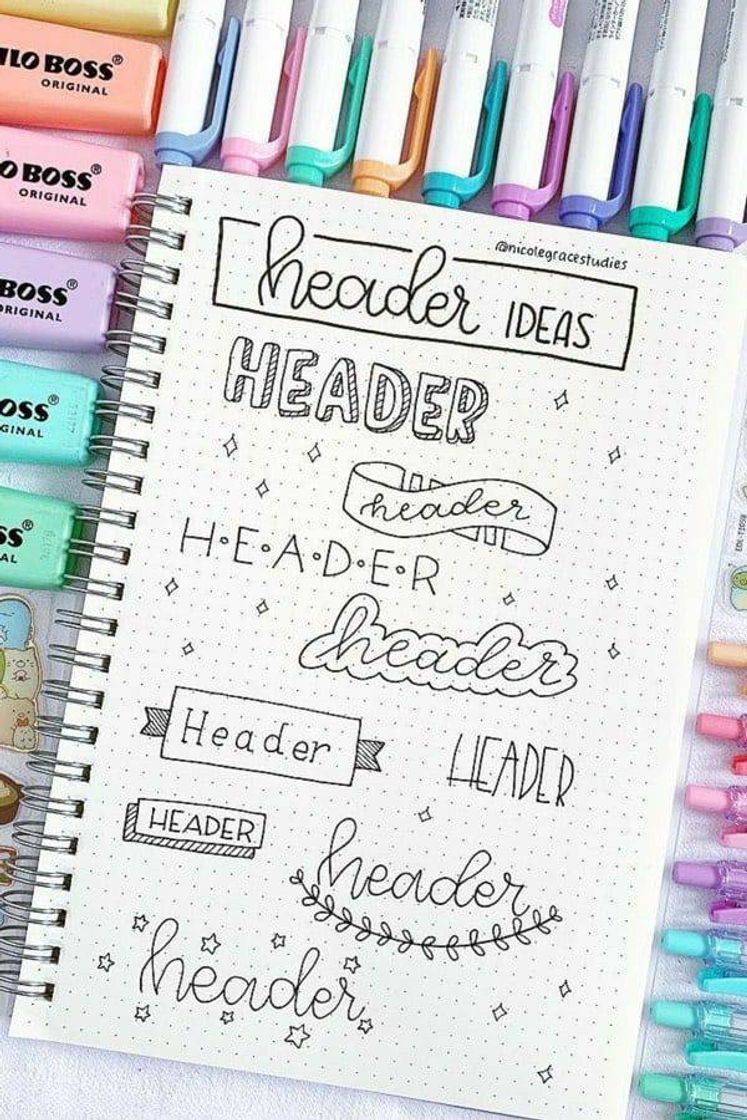 LO BOSS®
ORIGINAL
O BOSS®
ORIGINAL
BOSS®
ORIGINAL
OSS®
GINAL
SS®
AL
@nicolegracestudies
header IDEAS
HEADER
header
H•E•A•D•E•R
header
Header
HEADER
HEADER
header
header